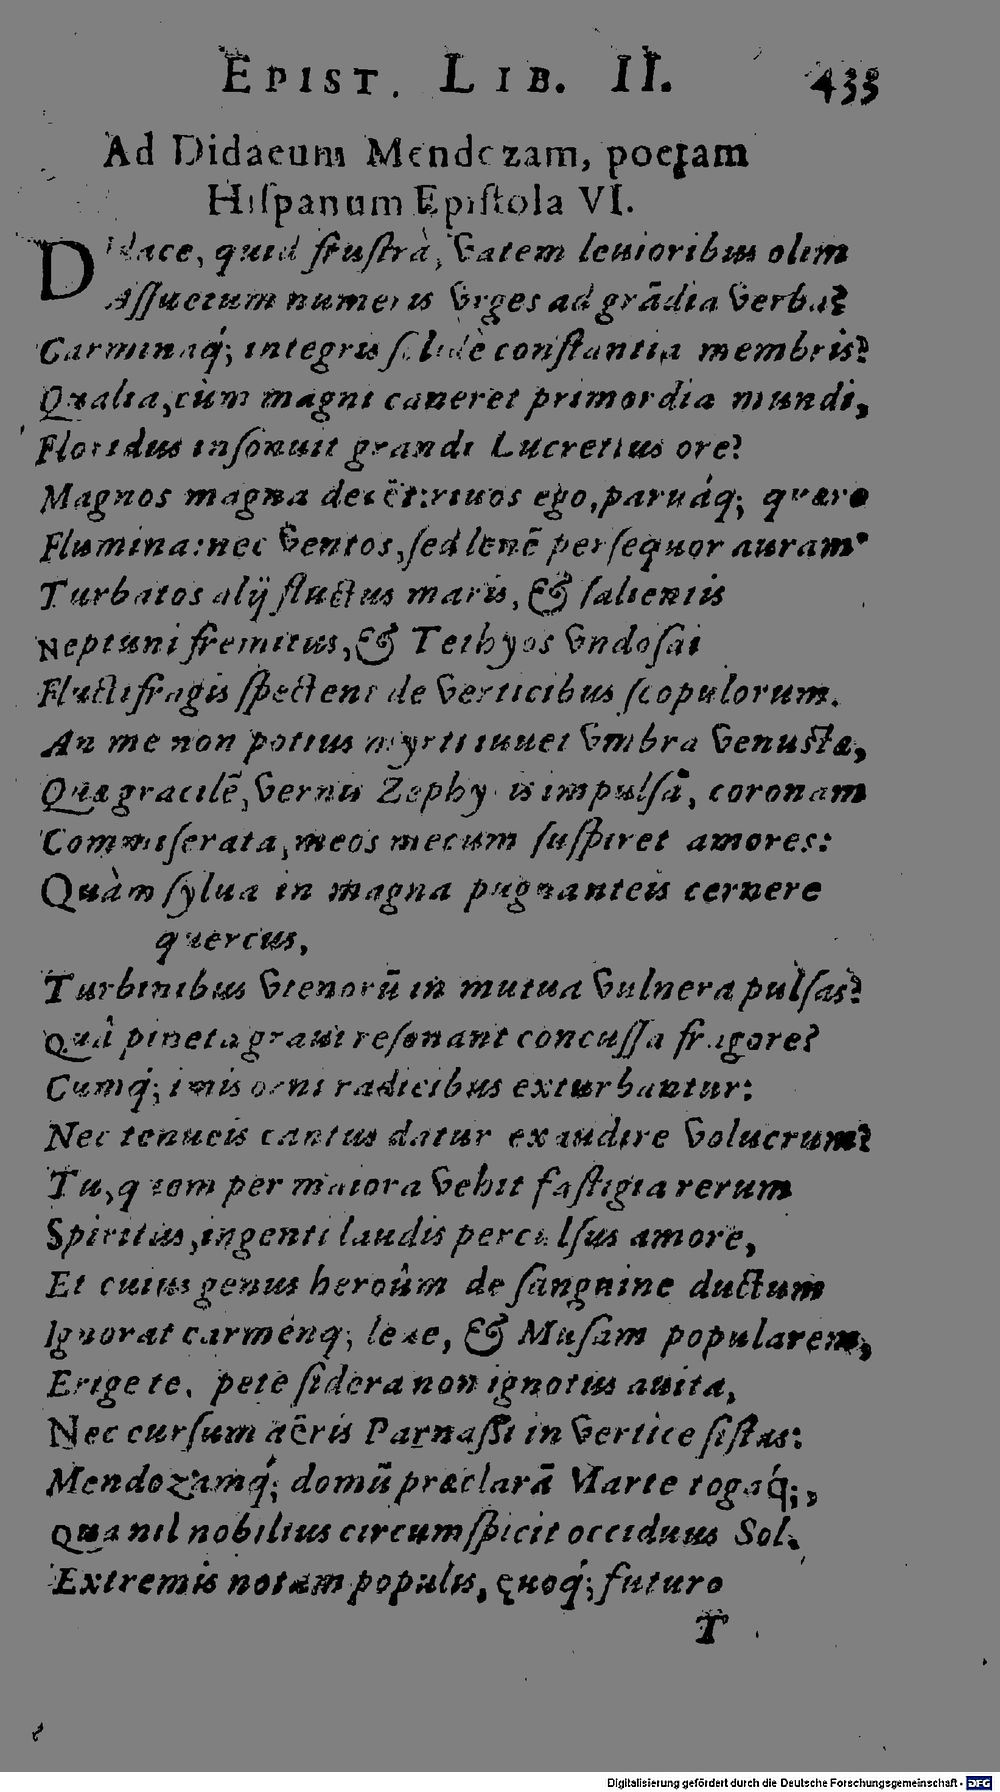 EPIST. LIB. II. 433
Ad Didacum Mendozam, poetam
Hiſpanum Epiſtola VI.
DIdace, quid fruſtrà, vatem leuioribus olim
Aſſuetum numeris vrges ad grãdia verba?
Carminaq́; integris ſolidè conſtantia membris?
Qualia, cùm magni caneret primordia mundi,
Floridus inſonuit grandi Lucretius ore?
Magnos magna decẽt: riuos ego, paruáq; quæro
Flumina: nec ventos, ſed lenẽ perſequor auram.
Turbatos alij fluctus maris, & ſalientis
Neptuni fremitus, & Tethyos vndoſai
Fluctifragis ſpectent de verticibus ſcopulorum.
An me non potius myrti iuuet vmbra venustæ,
Quæ gracilẽ, vernis Zephyris impulſa, coronam
Commiſerata, meos mecum ſuſpiret amores:
Quàm ſylua in magna pugnanteis cernere
quercus,
Turbinibus vtenorũ in mutua vulnera pulſas?
Quâ pineta graui reſonant concuſſa fragore?
Cumq́; imis orni radicibus exturbantur:
Nec tenueis cantus datur exaudire volucrum?
Tu, quem per maiora vehit faſtigia rerum
Spiritus, ingenti laudis perculſus amore,
Et cuius genus heroûm de ſanguine ductum
Ignorat carménq; leue, & Muſam popularem,
Erige te, pete ſidera non ignotus auita,
Nec curſum aẽris Parnaſſi in vertice ſiſtas:
Mendozamq́; domũ præclarã Marte togaq́;,
Qua nil nobilius circumſpicit occiduus Sol.
Extremis notam populis, ęuoq́; futuro
T
Digitalisierung gefördert durch die Deutsche Forschungsgemeinschaft - DFG